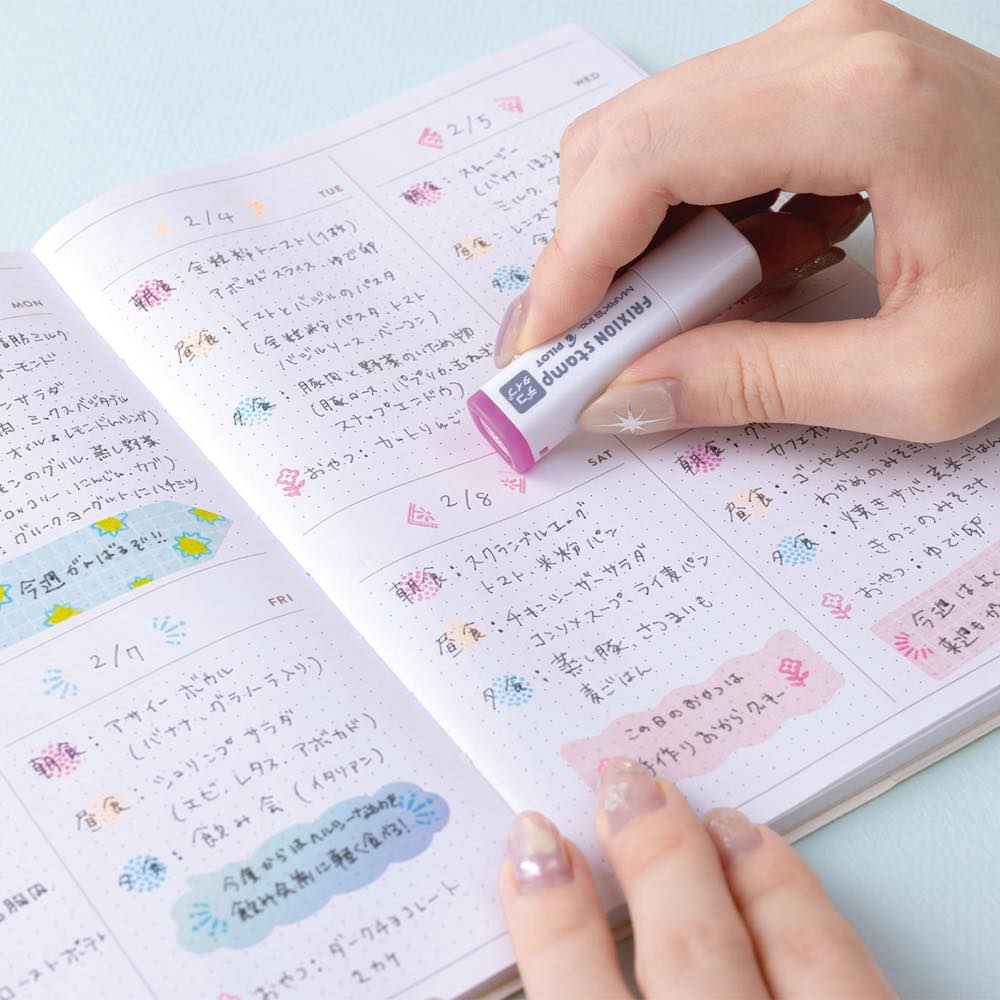 MON
脂ミルク
アーモンド
ンサラダ
ミックスベジタブル
オイル&レモンドレッシング)
モンのグリル、蒸し野菜
ロッコリー・にんじん・カブ)
グリークヨーグルトにハチミツ
今週がんばるぞ!!
TUE
2/4
朝食:全粒粉トースト(1枚)
アボカドスライス・ゆで卵
昼食:トマトとバジルのパスタ
(全粒粉パスタ・トマト
バジルソース・ベーコン)
夕食:豚肉と野菜のいため物
(豚ロース・パプリカ・玉ねぎ
スナップエンドウ)
おやつ:カットりんご
WED
2/5
朝食:スムージー
(バナナ、ほうれ
ミルク、
昼食:レンズ
夕食:
FRIXION stamp
MARK'S Inc. PILOT
デコタイプ
FRI
2/7
朝食:アサイーボウル
(バナナ、グラノーラ入り)
昼食:シュリンプサラダ
(エビ、レタス、アボカド)
夕食:飲み会(イタリアン)
飲み会前に軽く食べる!
おやつ:ダークチョコレート
2カケ
SAT
2/8
朝食:スクランブルエッグ
トマト・米粉パン
昼食:チキンシーザーサラダ
コンソメスープ、ライ麦パン
夕食:蒸し豚、さつまいも
麦ごはん
この日のおやつは
手作りおからクッキー
朝食:グ
カフェオレ
昼食:ゴーヤチャン
わかめのみそ
夕食:焼きサバ・玄米ごはん
きのこのみそ汁
おやつ:ゆで卵
今週はよく
来週もが
豚肉
ーストポテト